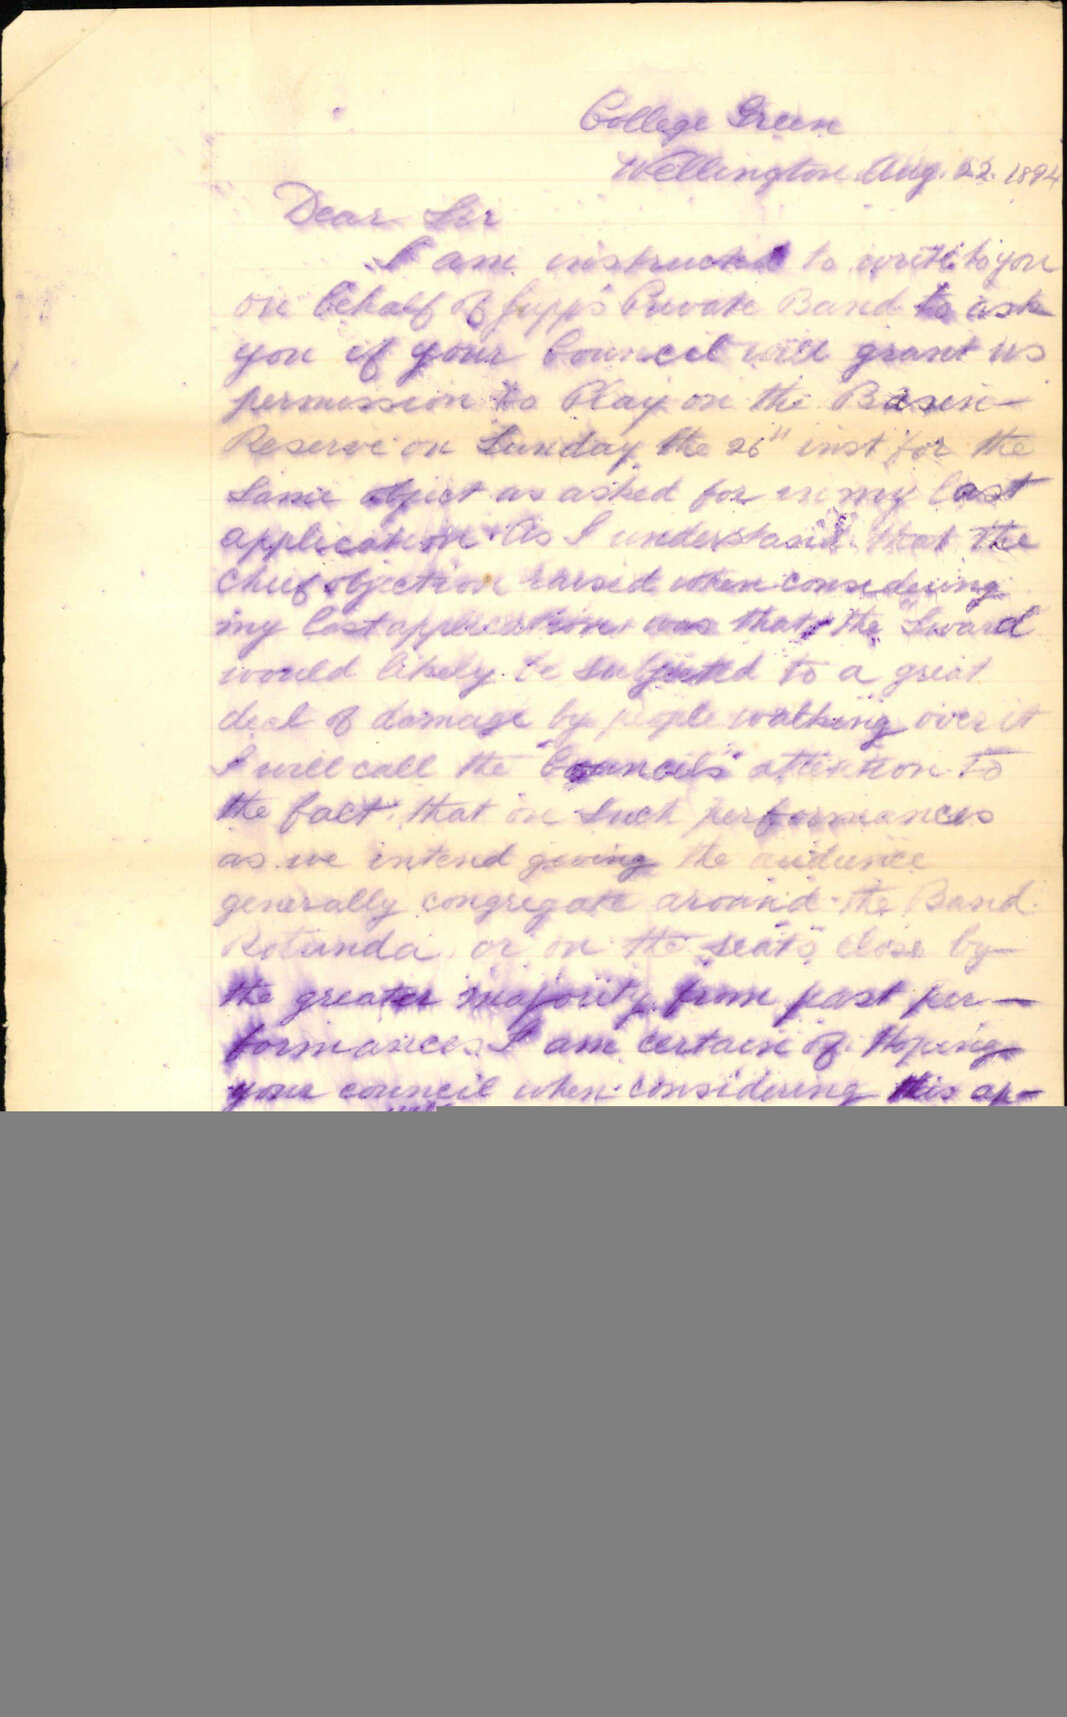 College Green
Wellington Aug. 22. 1894
Dear Sir
I am instructed to write to you
on behalf of Jupp's Private Band to ask
you if your Council will grant us
permission to Play on the Basin
Reserve on Sunday the 26" inst for the
Same object as asked for in my last
application. As I understand that the
chief objection raised when considering
my last application was that the Sward
would likely be subjected to a great
deal of damage by people walking over it
I will call the Council's attention to
the fact that on such performances
as we intend giving the audience
generally congregate around the Band
Rotunda or on the seats close by
the greater majority from past per-
formances I am certain of Hoping
your council when considering this ap-